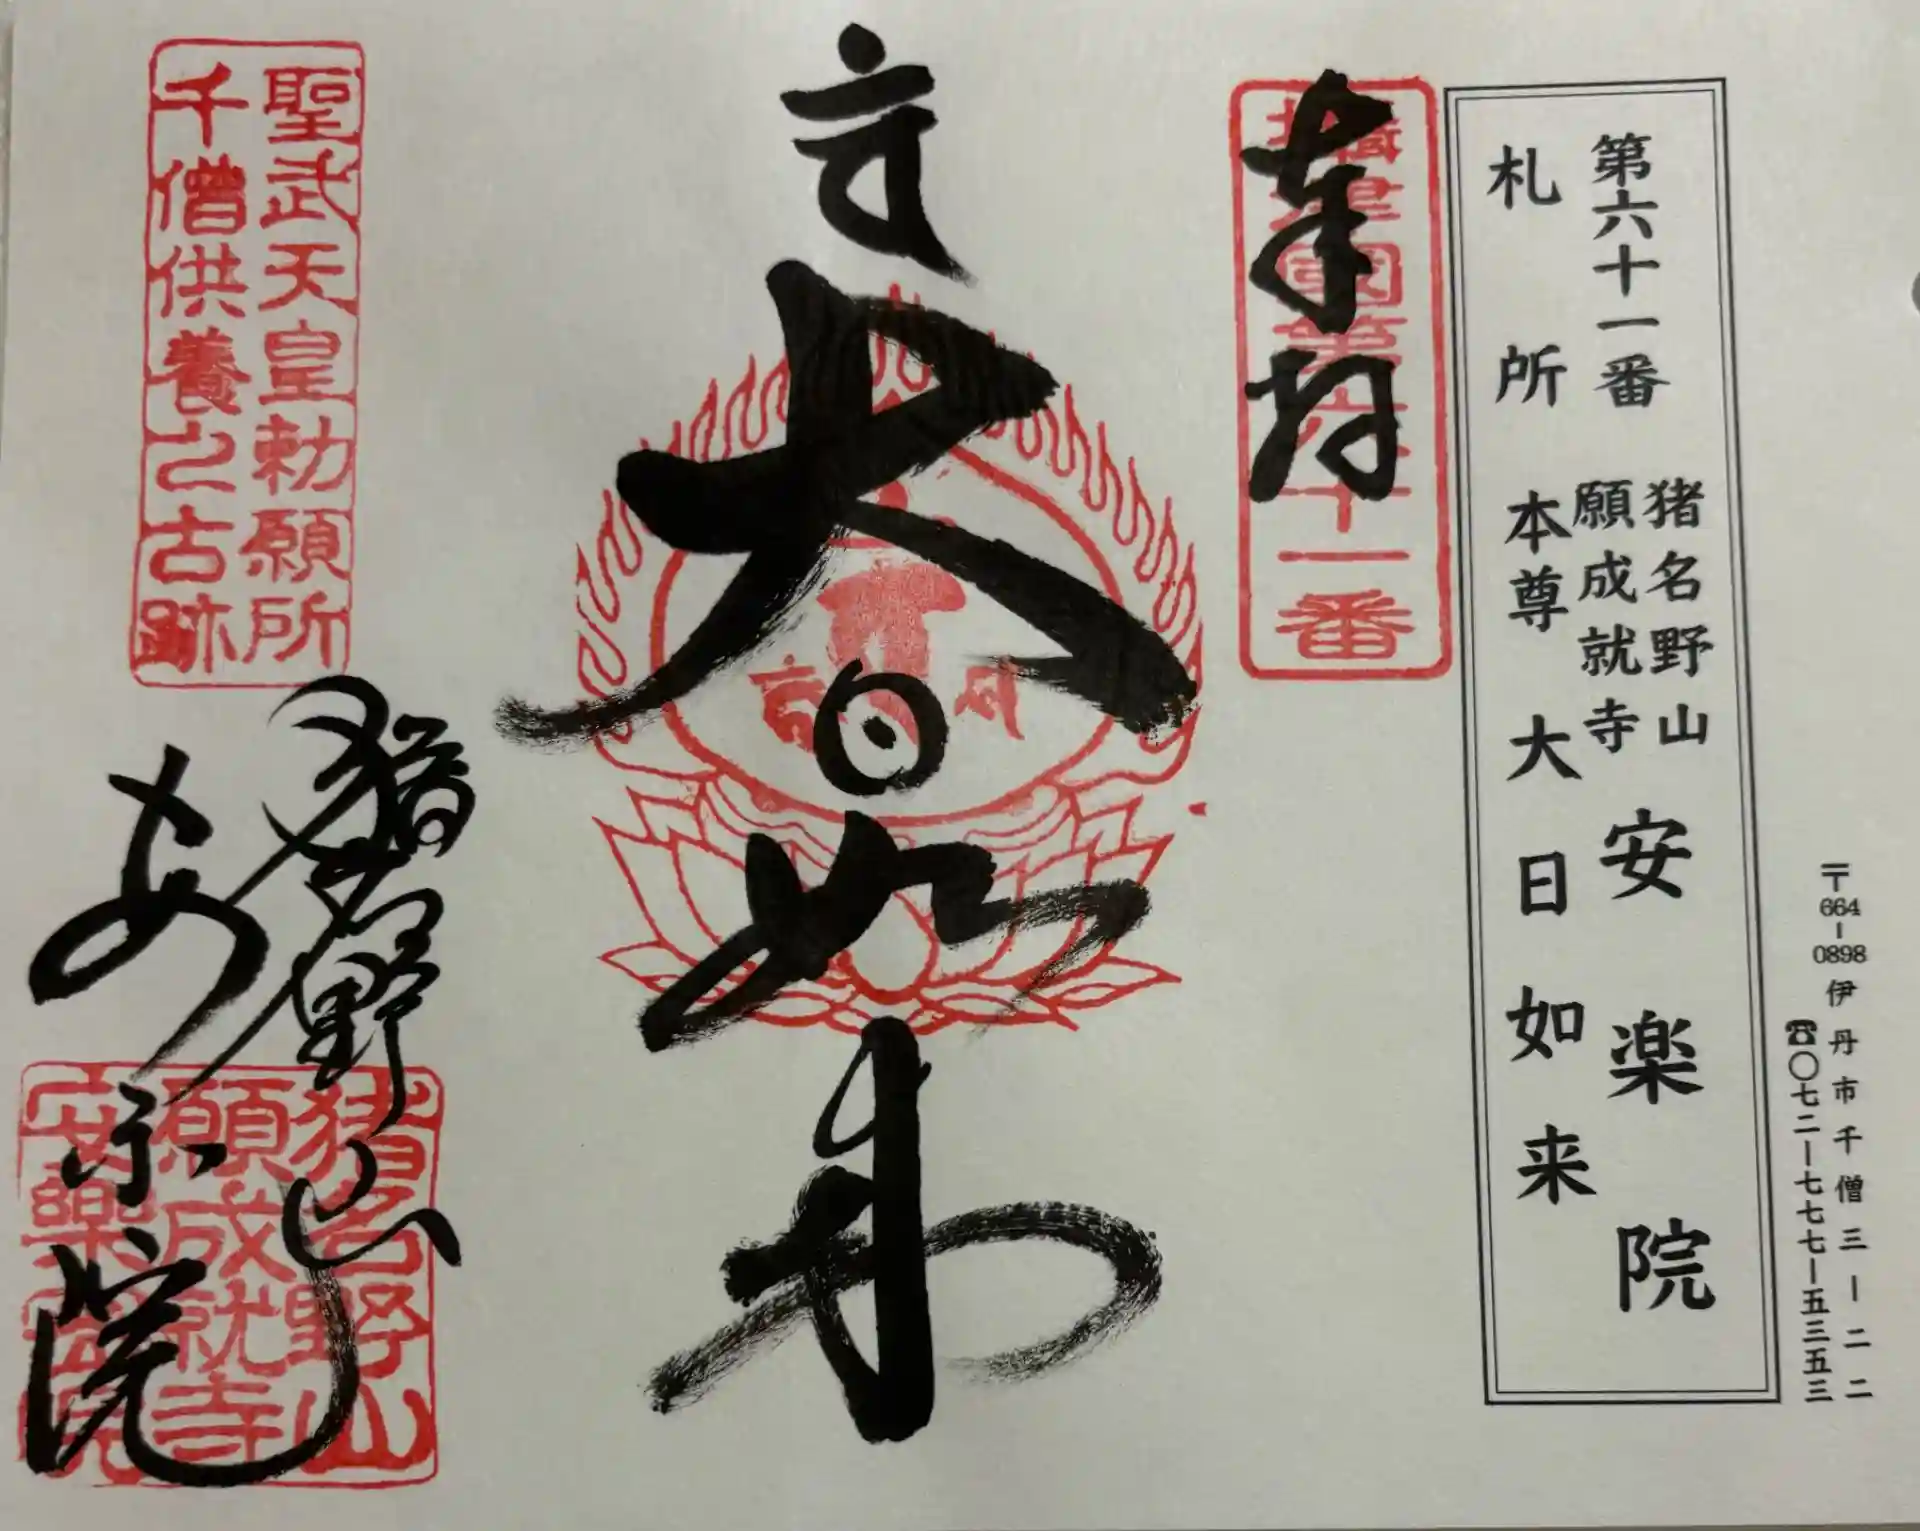 〒664-0898 伊丹市千僧三ー二二二
☎〇七二ー七七七ー五三五三
第六十一番 猪名野山
願成就寺 安楽院
札所 本尊 大日如来
奉拝
摂津国第六十一番
大日如来
聖武天皇勅願所
千僧供養之古跡
猪名野山
安楽院
猪名野山
願成就寺
安樂院